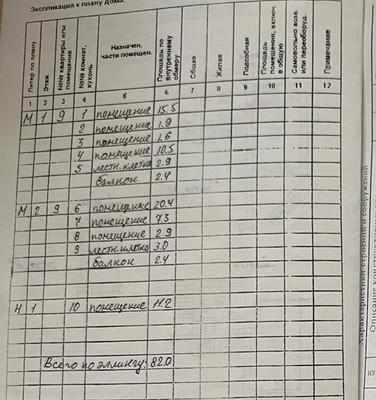 Экспликация к плану дома.
Литер по плану
Этаж
№№ квартиры или помещения
№№ комнат, кухонь
Назначен. части помещен.
Площадь по внутреннему обмеру
Общая
Жилая
Подсобная
Площадь помещения, включ. в общую
Самовольно возв. или переоборуд.
Примечание
1 2 3 4 5 6 7 8 9 10 11 12
М 1 9 1 помещение 15.5
2 помещение 1.9
3 помещение 1.6
4 помещение 10.5
5 лестн. клетка 2.9
балкон 2.4
М 2 9 6 помещение 20.4
7 помещение 7.3
8 помещение 2.9
9 лестн. клетка 3.0
балкон 2.4
Н 1 10 помещение 11.2
Всего по эллингу: 82.0
Характеристики строений и сооружений